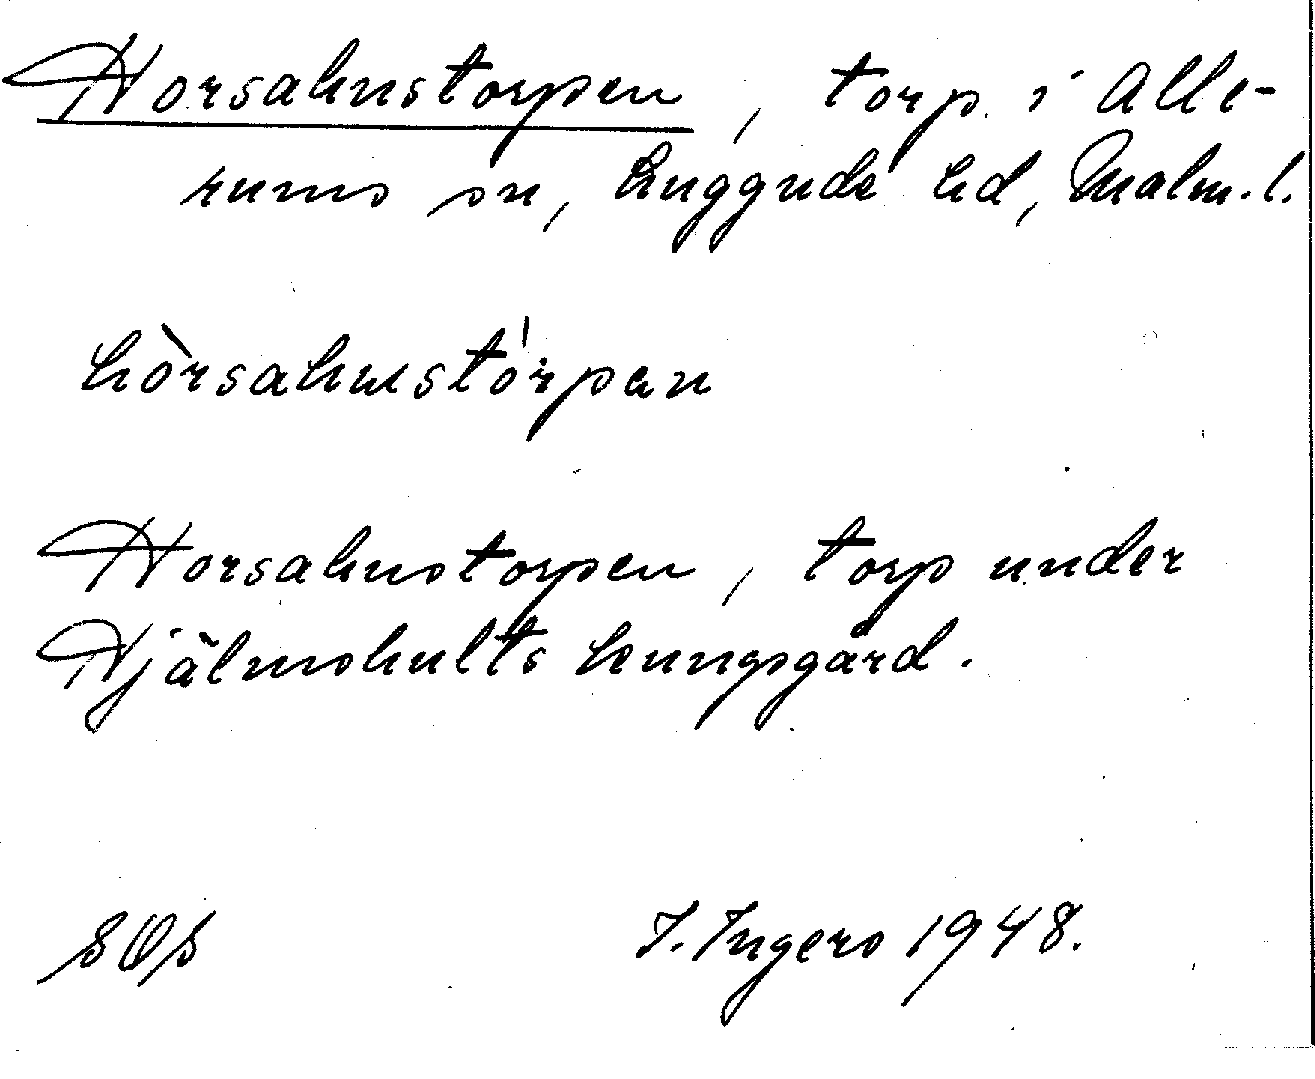 Horsahustorpen, torp i Alle-
rums sn, Luggude hd, Malm.l.
hòrsahustórpan
Horsahustorpen, torp under
Hjälmshults kungsgård.
SOS I. Ingers 1948.